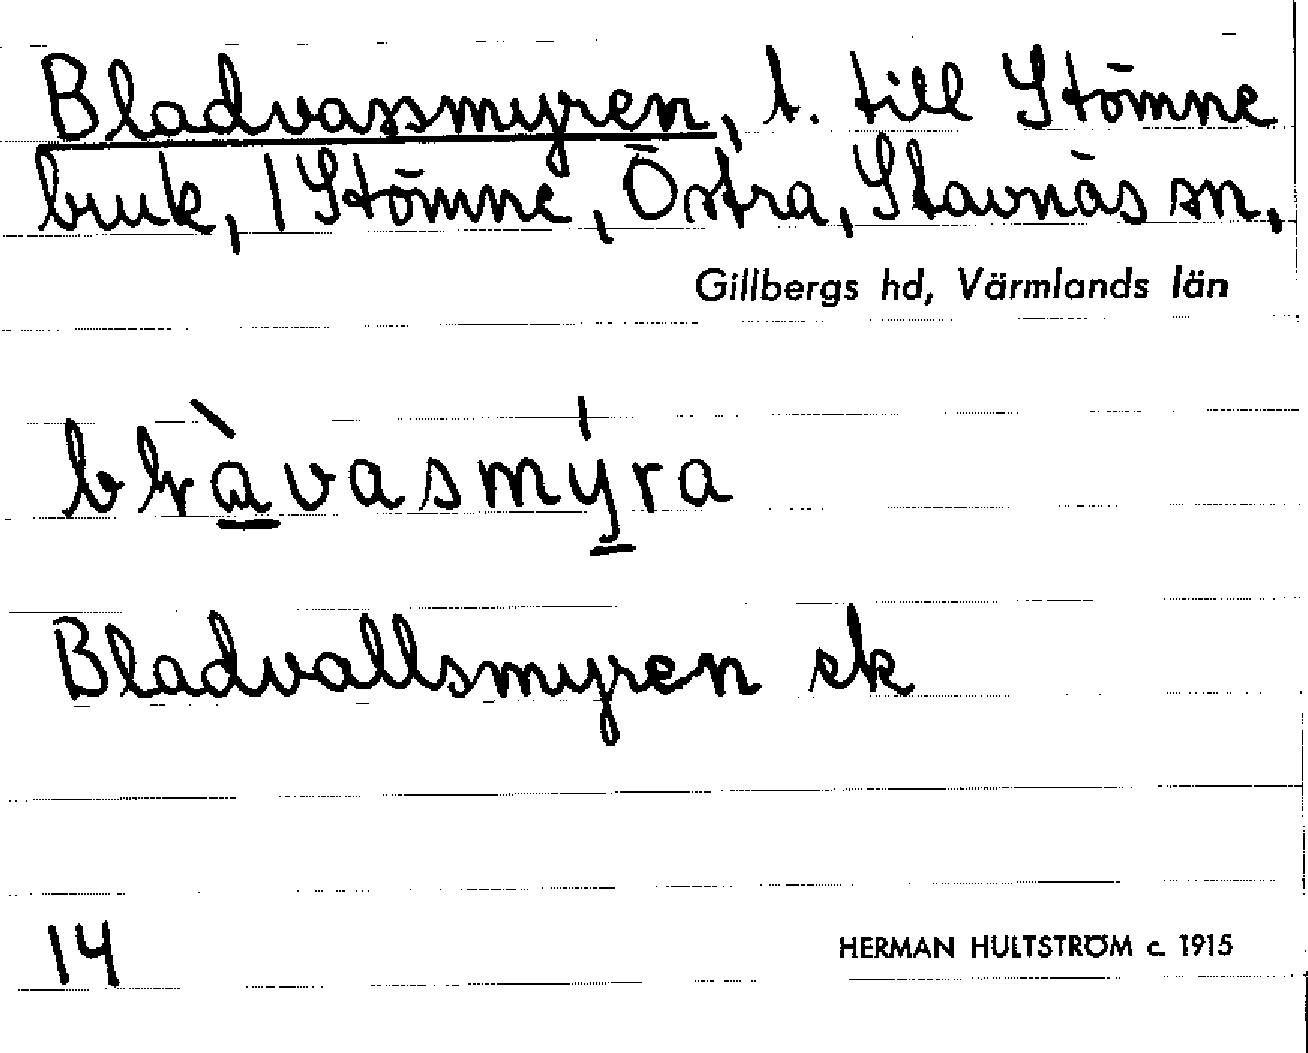 Bladvassmyren, t. till Stömne
bruk, 1 Stömne, Östra, Stavnäs sn,
Gillbergs hd, Värmlands län
blr̀avasmýra
Bladvallsmyren ek
14
HERMAN HULTSTRÖM c. 1915